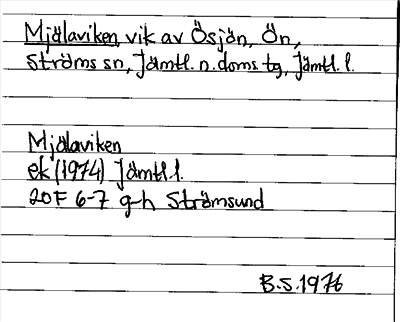 Mjälaviken, vik av Ösjön, Ön,
Ströms sn, Jämtl. n. doms. tg, Jämtl. l.
Mjälaviken
ek (1974) Jämtl. l.
20F 6-7 g-h Strömsund
B.S. 1976